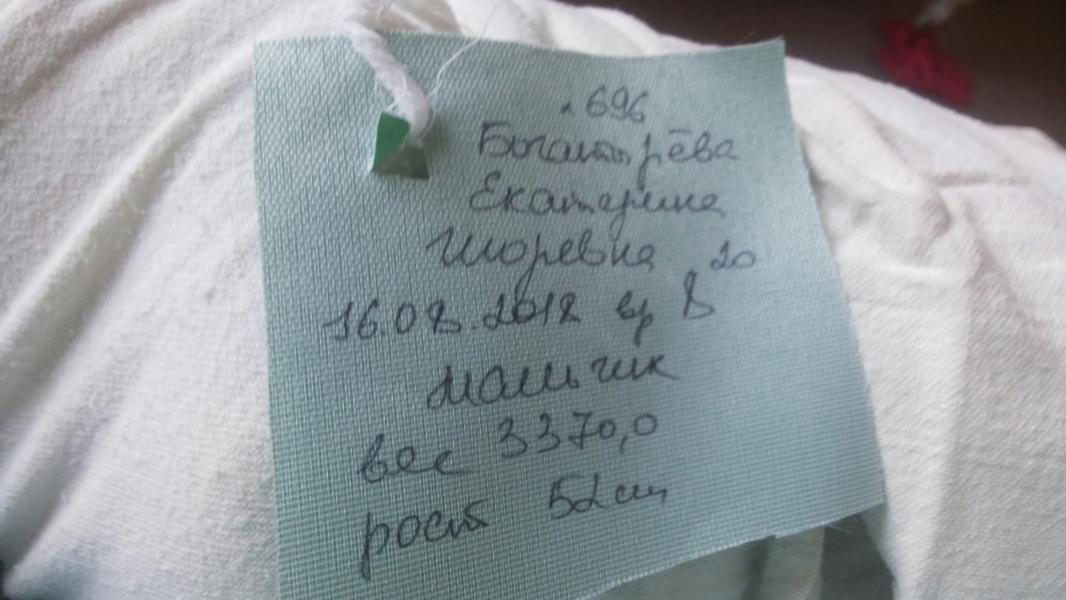 696
Богатырёва
Екатерина
Игоревна
16.08.2018 вр 8 20
мальчик
вес 3370,0
рост 52 см